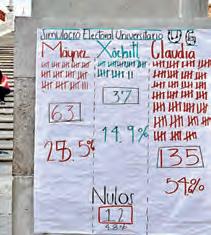 Simulacro Electoral Universitario UG
Máynez Xóchitl Claudia
63 37 135
25.5% 14.9% 54.8%
Nulos
12
4.8%